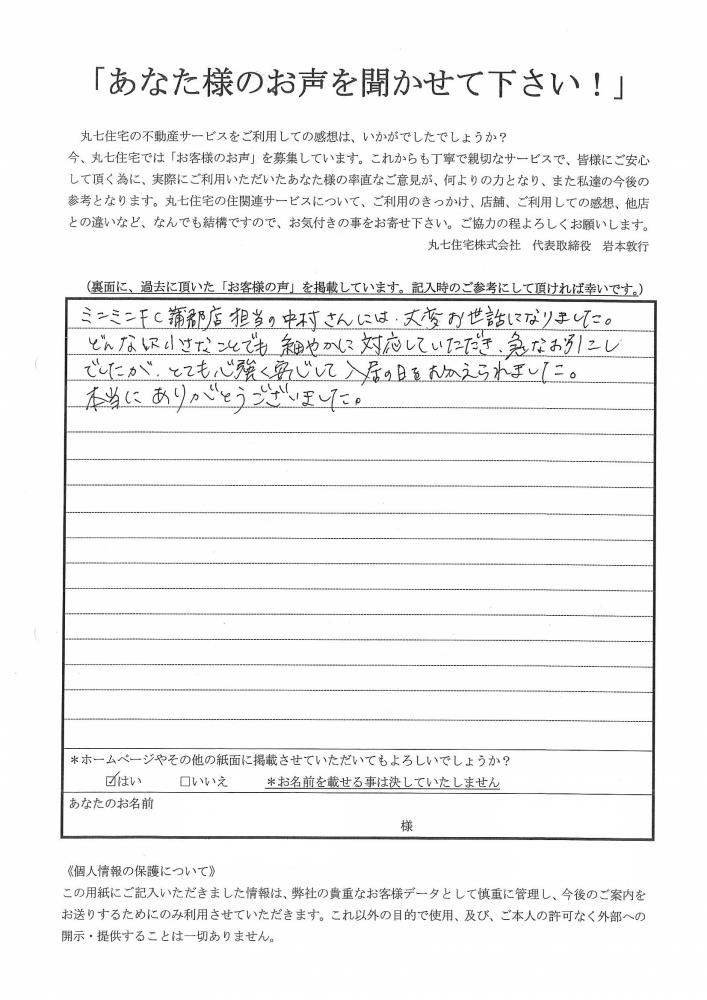 「あなた様のお声を聞かせて下さい！」
丸七住宅の不動産サービスをご利用しての感想は、いかがでしたでしょうか？
今、丸七住宅では「お客様のお声」を募集しています。これからも丁寧で親切なサービスで、皆様にご安心
して頂く為に、実際にご利用いただいたあなた様の率直なご意見が、何よりの力となり、また私達の今後の
参考となります。丸七住宅の住関連サービスについて、ご利用のきっかけ、店舗、ご利用しての感想、他店
との違いなど、なんでも結構ですので、お気付きの事をお寄せ下さい。ご協力の程よろしくお願いします。
丸七住宅株式会社　代表取締役　岩本敦行
（裏面に、過去に頂いた「お客様の声」を掲載しています。記入時のご参考にして頂ければ幸いです。）
ミニミニFC蒲郡店 担当の中村さんには、大変お世話になりました。
どんなに小さなことでも 細やかに対応していただき、急なお引こし
でしたが、とても心強く安心して入居の日をむかえられました。
本当に ありがとうございました。
＊ホームページやその他の紙面に掲載させていただいてもよろしいでしょうか？
☑はい　□いいえ　＊お名前を載せる事は決していたしません
あなたのお名前
様
《個人情報の保護について》
この用紙にご記入いただきました情報は、弊社の貴重なお客様データとして慎重に管理し、今後のご案内を
お送りするためにのみ利用させていただきます。これ以外の目的で使用、及び、ご本人の許可なく外部への
開示・提供することは一切ありません。